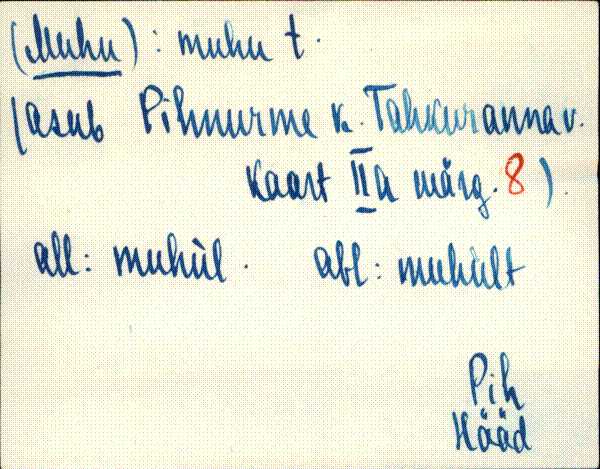 (Muhu) : muhu t.
(asub Pihnurme k. Tahkuranna v.
Kaart IIa märg. 8).
all: muhùl. abl: muhùlt
Pih
Hääd